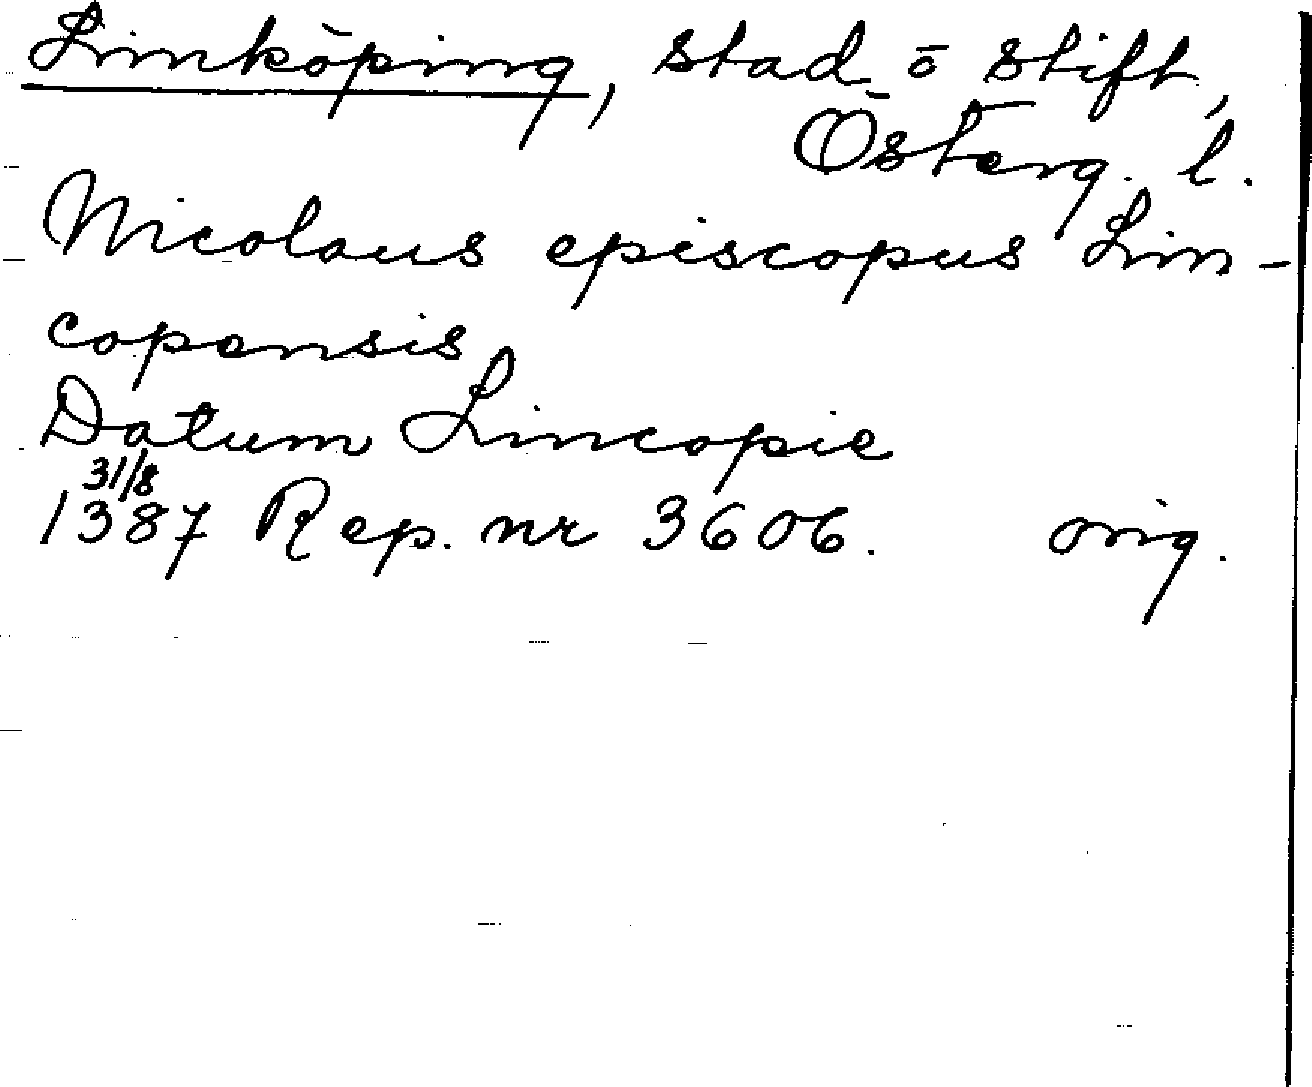 Linköping, stad ō stift,
Österg. l.
Nicolaus episcopus Lin-
copensis
Datum Lincopie
31/8
1387 Rep. nr 3606. orig.